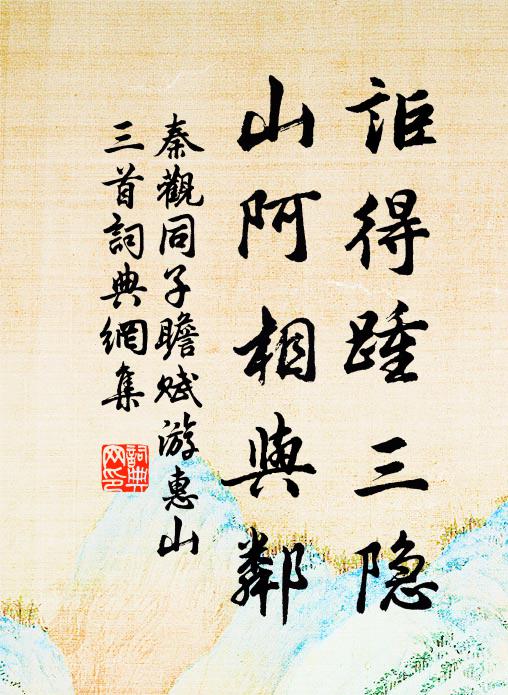 詎得踵三隐
山阿相與鄰
秦觀同子瞻賦游惠山
三首詞典網集
詞典
网印